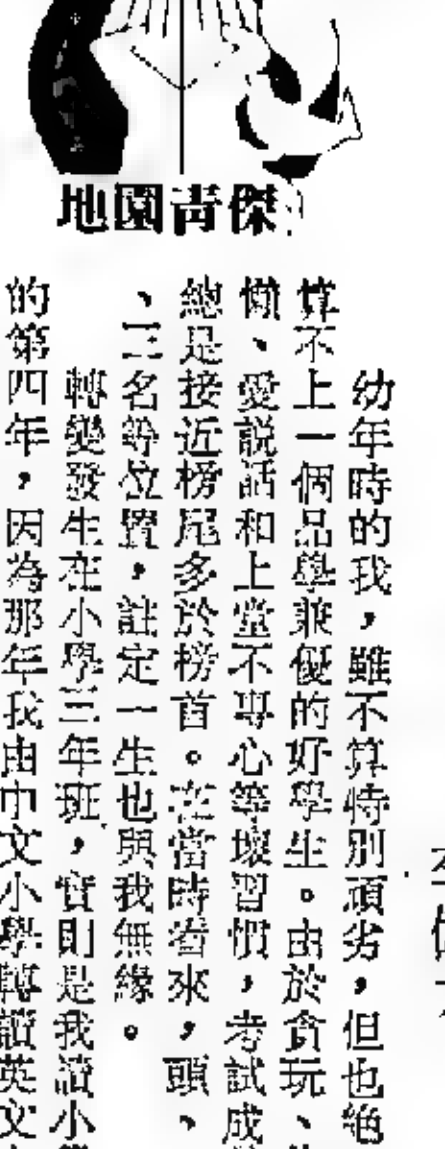 傑青園地
幼年時的我，雖不算特別頑劣，但也絕
算不上一個品學兼優的好學生。由於貪玩、
懶、愛説話和上堂不專心等壞習慣，考試成
總是接近榜尾多於榜首。在當時看來，頭、
、三名等位置，註定一生也與我無緣。
轉變發生在小學三年班，實則是我讀小
的第四年，因為那年我由中文小學轉讀英文